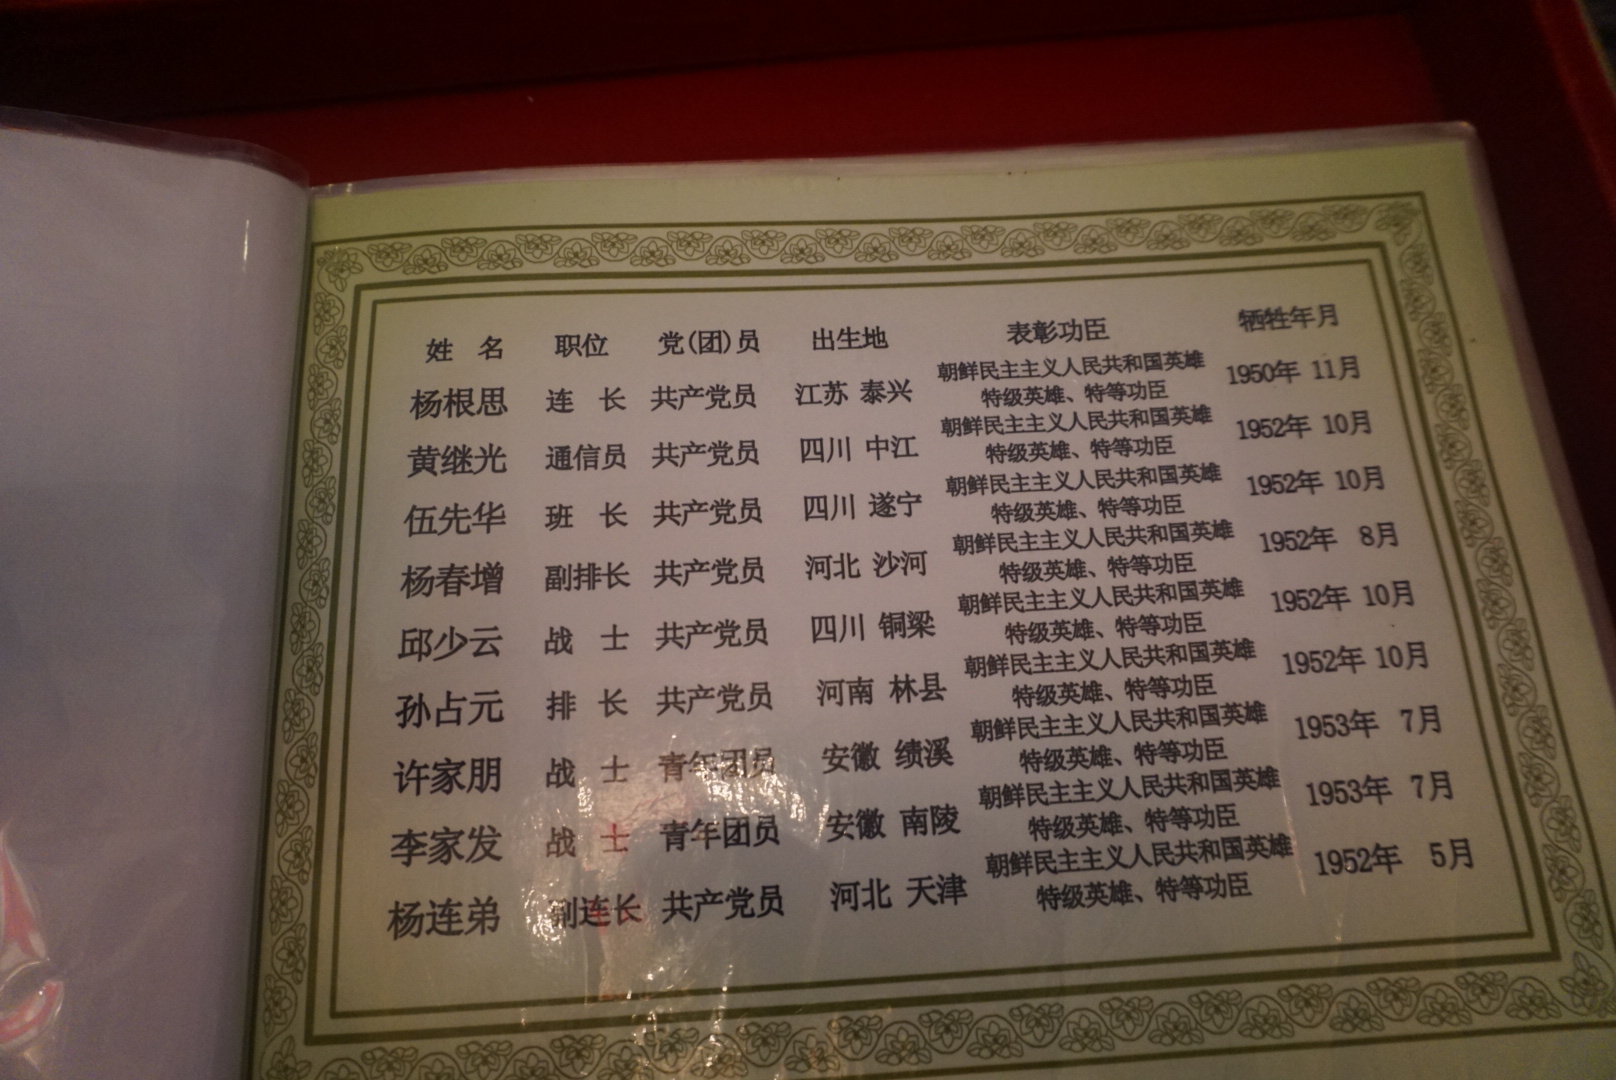 姓 名 职位 党(团)员 出生地 表彰功臣 牺牲年月
杨根思 连 长 共产党员 江苏 泰兴 朝鲜民主主义人民共和国英雄 1950年 11月
特级英雄、特等功臣
黄继光 通信员 共产党员 四川 中江 朝鲜民主主义人民共和国英雄 1952年 10月
特级英雄、特等功臣
伍先华 班 长 共产党员 四川 遂宁 朝鲜民主主义人民共和国英雄 1952年 10月
特级英雄、特等功臣
杨春增 副排长 共产党员 河北 沙河 朝鲜民主主义人民共和国英雄 1952年 8月
特级英雄、特等功臣
邱少云 战 士 共产党员 四川 铜梁 朝鲜民主主义人民共和国英雄 1952年 10月
特级英雄、特等功臣
孙占元 排 长 共产党员 河南 林县 朝鲜民主主义人民共和国英雄 1952年 10月
特级英雄、特等功臣
许家朋 战 士 青年团员 安徽 绩溪 朝鲜民主主义人民共和国英雄 1953年 7月
特级英雄、特等功臣
李家发 战 士 青年团员 安徽 南陵 朝鲜民主主义人民共和国英雄 1953年 7月
特级英雄、特等功臣
杨连弟 副连长 共产党员 河北 天津 朝鲜民主主义人民共和国英雄 1952年 5月
特级英雄、特等功臣